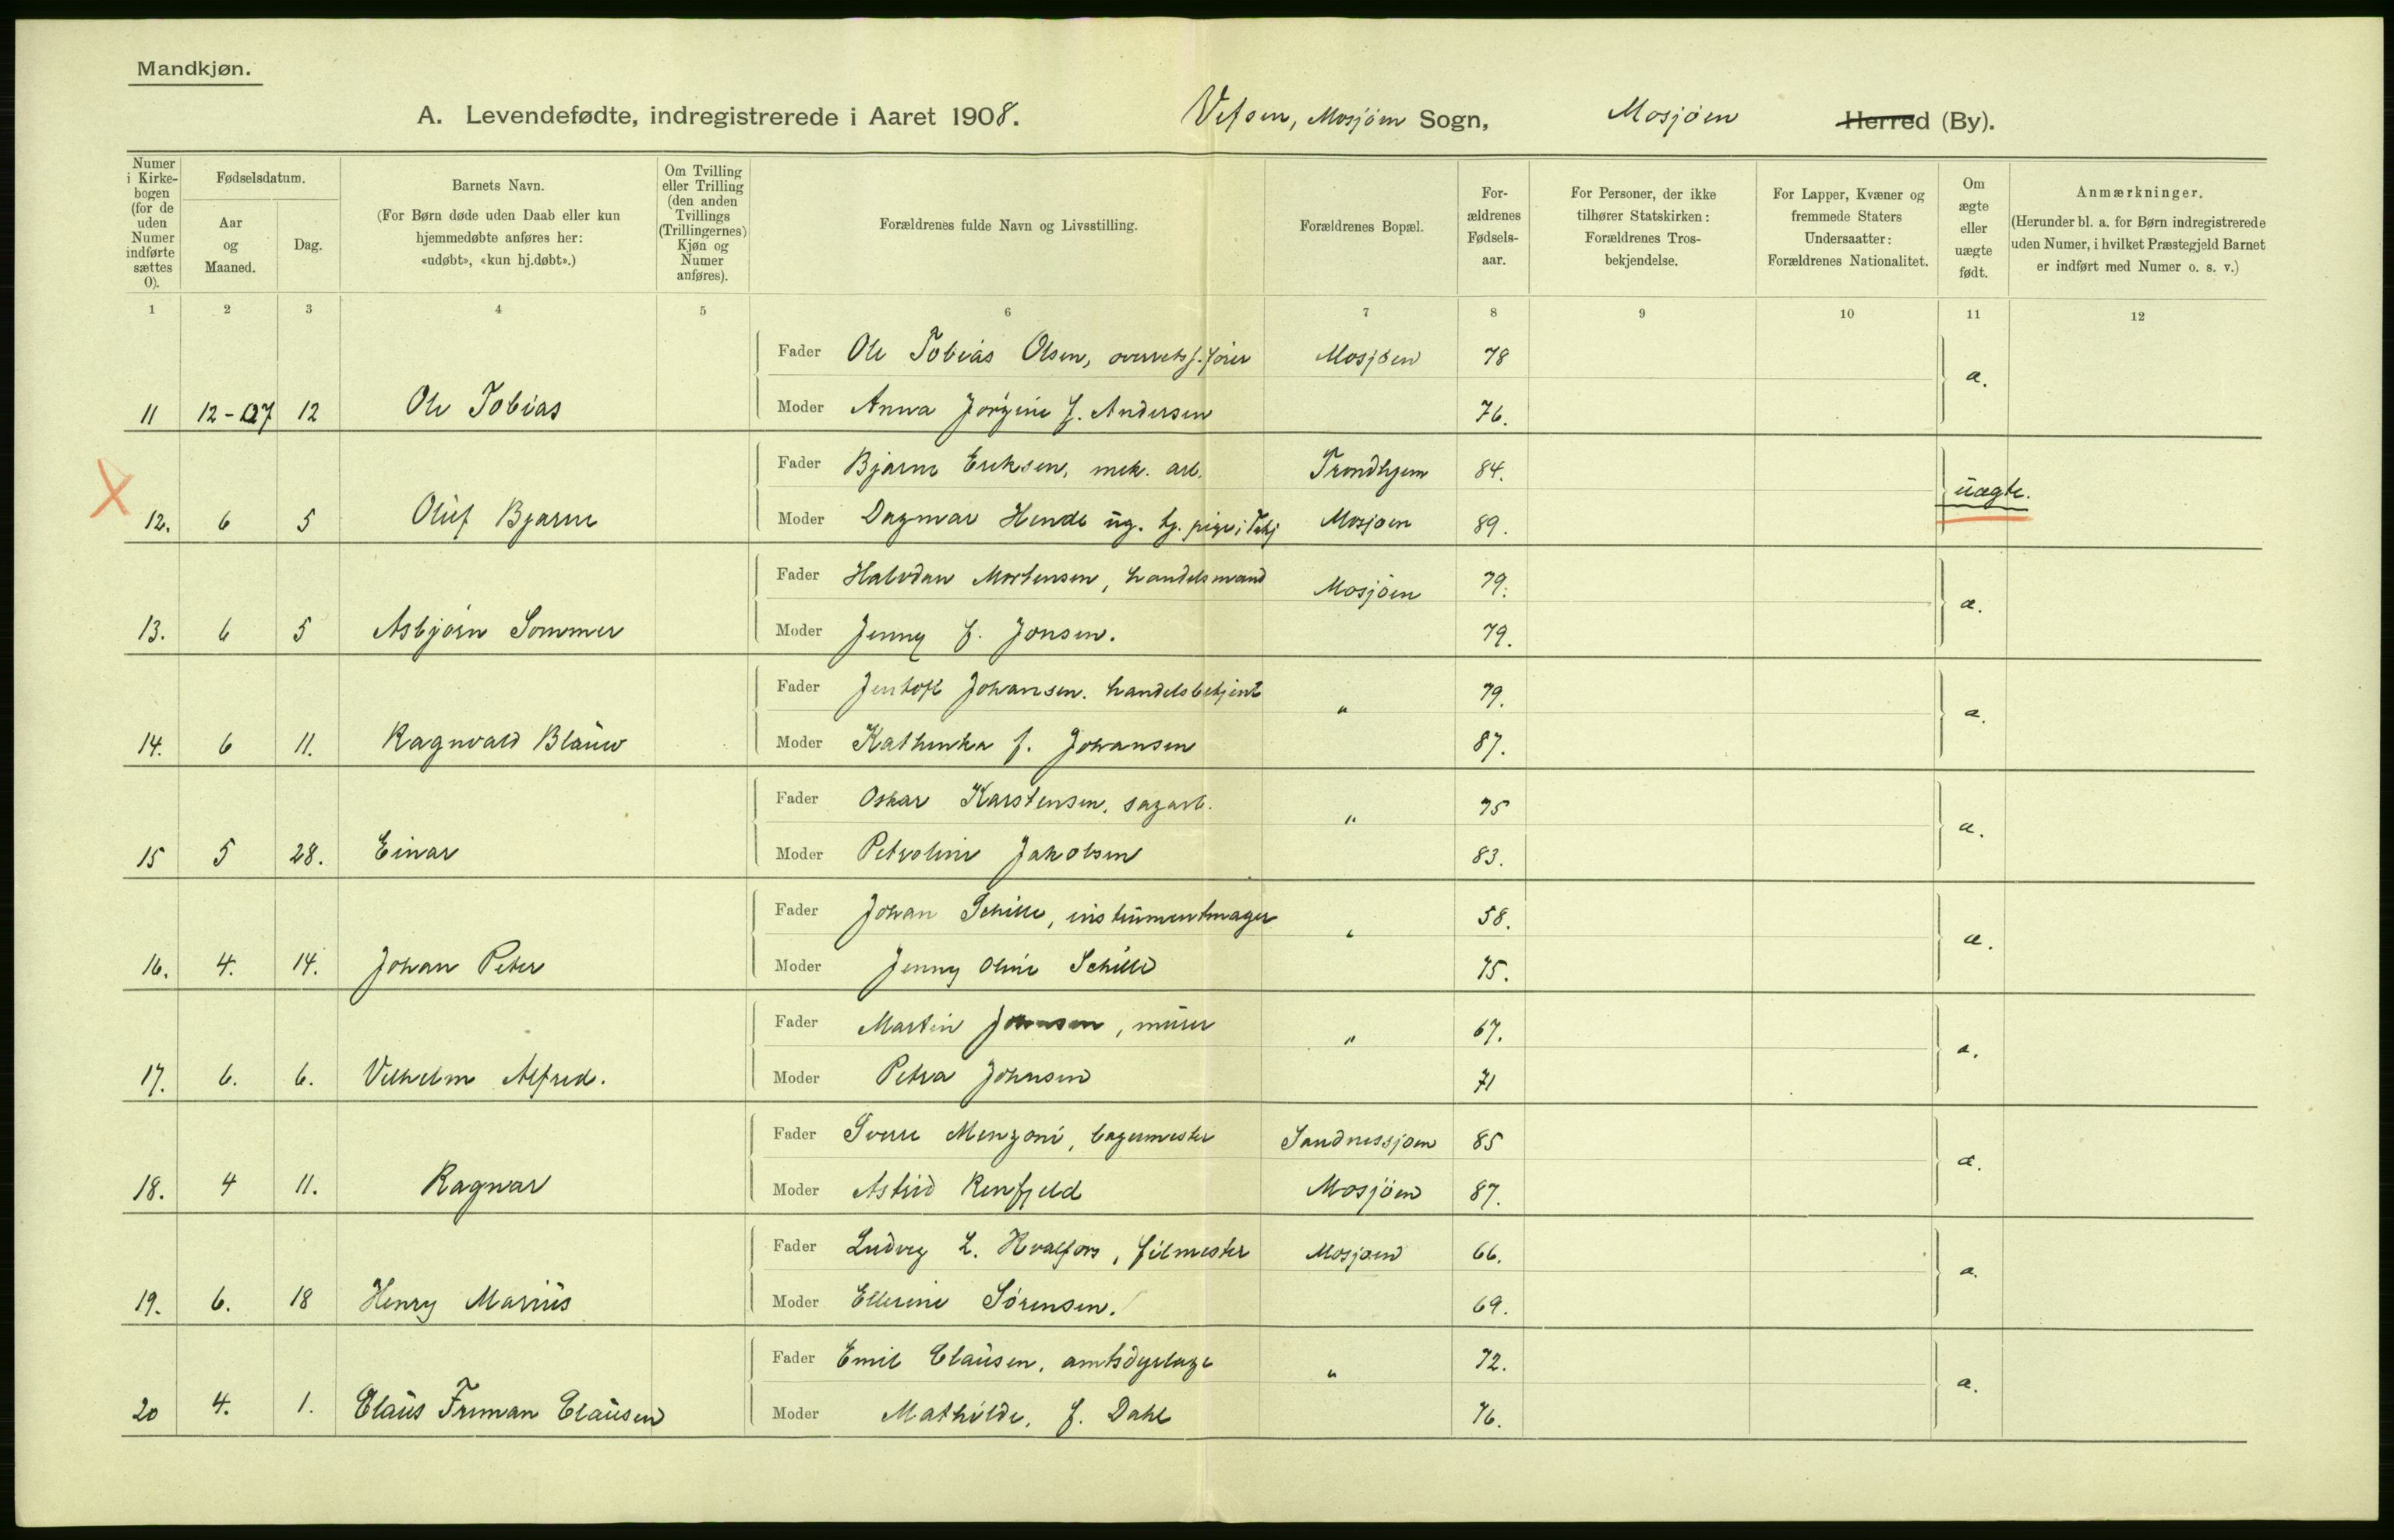 Mandkjøn.
A. Levendefødte, indregistrerede i Aaret 1908. Vefsen, Mosjøen Sogn, Mosjøen Herred (By).
Numer i Kirke-bogen (for de uden Numer indførte sættes 0).
Fødselsdatum.
Aar og Maaned.
Dag.
Barnets Navn.
(For Børn døde uden Daab eller kun hjemmedøbte anføres her: «udøbt», «kun hj.døbt».)
Om Tvilling eller Trilling (den anden Tvillings (Trillingernes) Kjøn og Numer anføres).
Forældrenes fulde Navn og Livsstilling.
Forældrenes Bopæl.
For-ældrenes Fødsels-aar.
For Personer, der ikke tilhører Statskirken: Forældrenes Tros-bekjendelse.
For Lapper, Kvæner og fremmede Staters Undersaatter: Forældrenes Nationalitet.
Om ægte eller uægte født.
Anmærkninger.
(Herunder bl. a. for Børn indregistrerede uden Numer, i hvilket Præstegjeld Barnet er indført med Numer o. s. v.)
1 2 3 4 5 6 7 8 9 10 11 12
Fader Ole Tobias Olsen, overretss.fører Mosjøen 78
11 12-07 12 Ole Tobias Moder Anna Jørgine f. Andersen 76. æ.
Fader Bjarne Eriksen, mek. arb. Trondhjem 84.
12. 6 5 Oluf Bjarne Moder Dagmar Hende ug. tj. pige i Mosjøen 89. uægte.
Fader Halvdan Mortensen, handelsmand Mosjøen 79.
13. 6 5 Asbjørn Sommer Moder Jenny f. Jonsen. 79. æ.
Fader Jentoft Johansen. handelsbetjent " 79.
14. 6 11. Ragnvald Blauw Moder Kathinka f. Johansen 87. æ.
Fader Oskar Karstensen, sagarb. " 75
15 5 28. Einar Moder Petroline Jakobsen 83. æ.
Fader Johan Schille, instrumentmager " 58.
16. 4. 14. Johan Peter Moder Jenny Oline Schille 75. æ.
Fader Martin Johnsen, murer " 67.
17. 6. 6. Vilhelm Alfred. Moder Petra Johnsen 71 æ.
Fader Sverre Menzoni, bagermester Sandnessjøen 85
18. 4 11. Ragnar Moder Astrid Renfjeld Mosjøen 87. æ.
Fader Ludvig L. Hvalfors, filmester Mosjøen 66.
19. 6. 18 Henry Marius Moder Ellerine Sørensen. 69. æ.
Fader Emil Clausen, amtsdyrlæge " 72.
20 4. 1. Claus Freman Clausen Moder Mathilde, f. Dahl 76. æ.